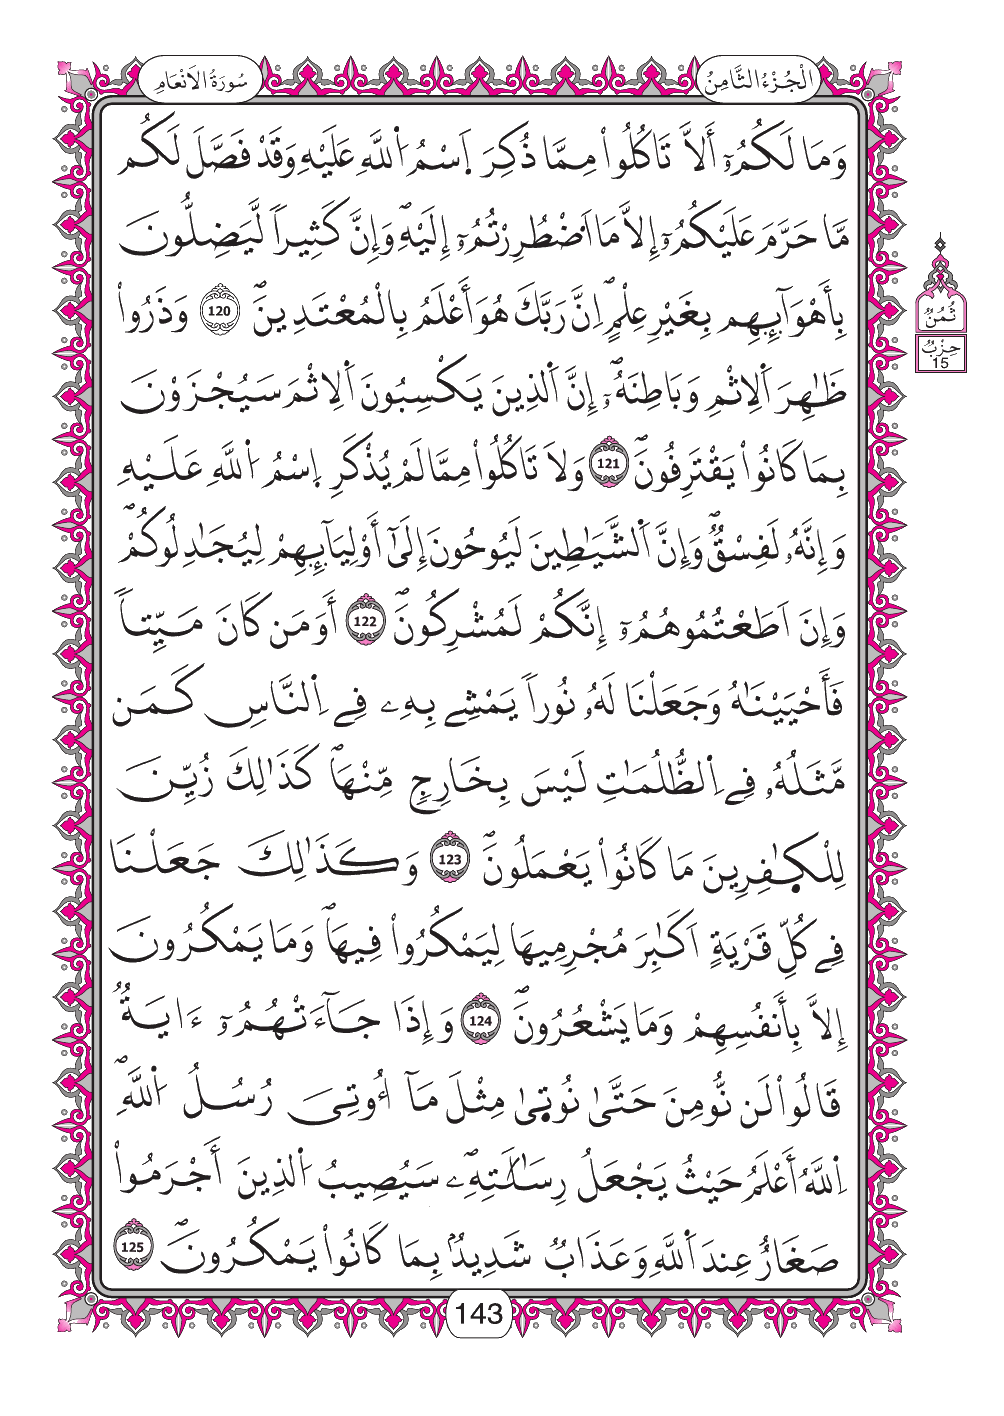 سُورَةُ الَانْعَامِ
الْجُزْءُ الثَّامِنُ
وَمَا لَكُمُۥٓ أَلَّا تَاكُلُواْ مِمَّا ذُكِرَ اَ۪سْمُ اُ۬للَّهِ عَلَيْهِ وَقَدْ فَصَّلَ لَكُم
مَّا حَرَّمَ عَلَيْكُمُۥٓ إِلَّا مَا اَ۟ضْطُرِرْتُمُۥٓ إِلَيْهِۖ وَإِنَّ كَثِيراٗ لَّيَضِلُّونَ
بِأَهْوَآئِهِم بِغَيْرِ عِلْمٍۖ اِنَّ رَبَّكَ هُوَ أَعْلَمُ بِالْمُعْتَدِينَۖ 120 وَذَرُواْ
ظَٰهِرَ اَ۬لِاثْمِ وَبَاطِنَهُۥٓۖ إِنَّ اَ۬لذِينَ يَكْسِبُونَ اَ۬لِاثْمَ سَيُجْزَوْنَ
بِمَا كَانُواْ يَقْتَرِفُونَۖ 121 وَلَا تَاكُلُواْ مِمَّا لَمْ يُذْكَرِ اِ۪سْمُ اُ۬للَّهِ عَلَيْهِ
وَإِنَّهُۥ لَفِسْقٞۖ وَإِنَّ اَ۬لشَّيَٰطِينَ لَيُوحُونَ إِلَىٰٓ أَوْلِيَآئِهِمْ لِيُجَٰدِلُوكُمْۖ
وَإِنَ اَطَعْتُمُوهُمُۥٓ إِنَّكُمْ لَمُشْرِكُونَۖ 122 أَوَمَن كَانَ مَيِّتاٗ
فَأَحْيَيْنَٰهُ وَجَعَلْنَا لَهُۥ نُوراٗ يَمْشِے بِهِۦ فِے اِ۬لنَّاسِ كَمَن
مَّثَلُهُۥ فِے اِ۬لظُّلُمَٰتِ لَيْسَ بِخَارِجٖ مِّنْهَاۖ كَذَٰلِكَ زُيِّنَ
لِلْكٰ۪فِرِينَ مَا كَانُواْ يَعْمَلُونَۖ 123 وَكَذَٰلِكَ جَعَلْنَا
فِے كُلِّ قَرْيَةٍ اَكَٰبِرَ مُجْرِمِيهَا لِيَمْكُرُواْ فِيهَاۖ وَمَا يَمْكُرُونَ
إِلَّا بِأَنفُسِهِمْ وَمَا يَشْعُرُونَۖ 124 وَإِذَا جَآءَتْهُمُۥٓ ءَايَةٞ
قَالُواْ لَن نُّومِنَ حَتَّىٰ نُوت۪ىٰ مِثْلَ مَآ أُوتِيَ رُسُلُ اُ۬للَّهِۖ
اِ۬للَّهُ أَعْلَمُ حَيْثُ يَجْعَلُ رِسَٰلَٰتِهِۦۖ سَيُصِيبُ اُ۬لذِينَ أَجْرَمُواْ
صَغَارٌ عِندَ اَ۬للَّهِ وَعَذَابٞ شَدِيدُۢ بِمَا كَانُواْ يَمْكُرُونَۖ 125
ثُمُنٌ
حِزْبٌ
15
143